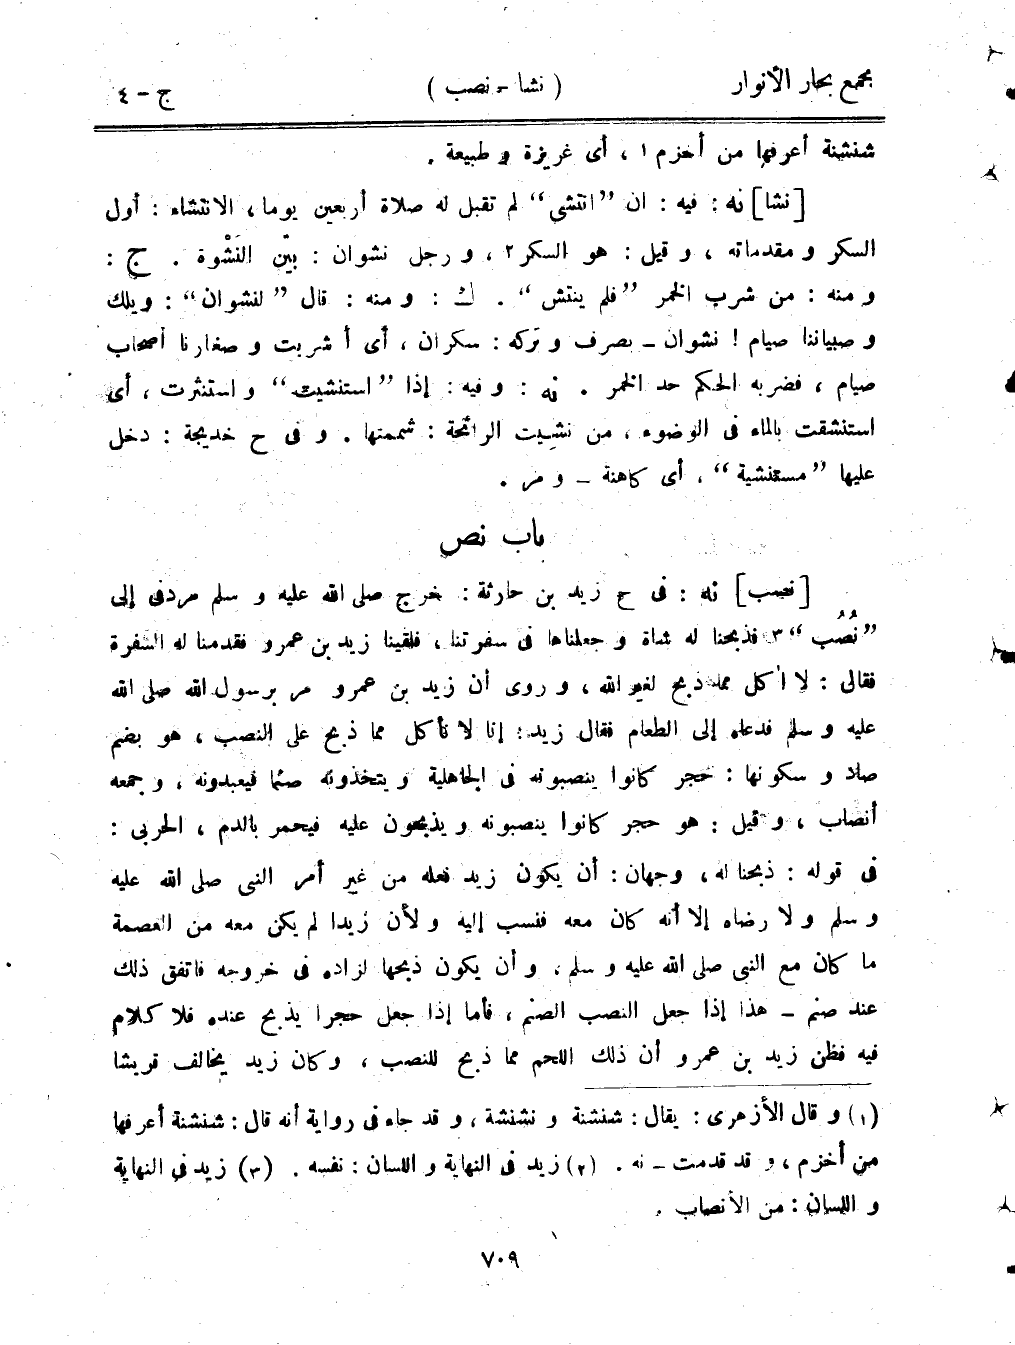 مجمع بحار الأنوار ( نشا - نصب ) ج - ٤
شنشنة أعرفها من أخزم ١ ، أى غريزة و طبيعة .
[نشا] نه : فيه : ان ”انتشى“ لم تقبل له صلاة أربعين يوما ، الانتشاء : أول
السكر و مقدماته ، و قيل : هو السكر ٢ ، و رجل نشوان : بيّن النَشْوة . ج :
و منه : من شرب الخمر ”فلم ينتش“ . ك : و منه : قال ”لنشوان“ : ويلك
و صبياننا صيام ! نشوان ــ بصرف و تركه : سكران ، أى أ شربت و صغارنا أصحاب
صيام ، فضربه الحكم حد الخمر . نه : و فيه : إذا ”استنشيت“ و استنثرت ، أى
استنشقت بالماء فى الوضوء ، من نشيت الرائحة : شممتها . و فى ح خديجة : دخل
عليها ”مستنشية“ ، أى كاهنة ــ و مر .
باب نص
[نصب] نه : فى ح زيد بن حارثة : خرج صلى الله عليه و سلم مردفى إلى
”نُصُب“ ٣ فذبحنا له شاة و جعلناها فى سفرتنا ، فلقينا زيد بن عمرو فقدمنا له السفرة
فقال : لا أكل مما ذبح لغير الله ، و روى أن زيد بن عمرو مر برسول الله صلى الله
عليه و سلم فدعاه إلى الطعام فقال زيد : إنا لا نأكل مما ذبح على النصب ، هو بضم
صاد و سكونها : حجر كانوا ينصبونه فى الجاهلية و يتخذونه صنما فيعبدونه ، و جمعه
أنصاب ، و قيل : هو حجر كانوا ينصبونه و يذبحون عليه فيحمر بالدم ، الحربى :
فى قوله : ذبحنا له ، وجهان : أن يكون زيد فعله من غير أمر النبى صلى الله عليه
و سلم و لا رضاه إلا أنه كان معه فنسب إليه و لأن زيدا لم يكن معه من العصمة
ما كان مع النبى صلى الله عليه و سلم ، و أن يكون ذبحها لزاده فى خروجه فاتفق ذلك
عند صنم ــ هذا إذا جعل النصب الصنم ، فأما إذا جعل حجرا يذبح عنده فلا كلام
فيه فظن زيد بن عمرو أن ذلك اللحم مما ذبح للنصب ، و كان زيد يخالف قريشا
(١) و قال الأزهرى : يقال : شنشنة و نشنشة ، و قد جاء فى رواية أنه قال : شنشنة أعرفها
من أخزم ، و قد قدمت ــ نه . (٢) زيد فى النهاية و اللسان : نفسه . (٣) زيد فى النهاية
و اللسان : من الأنصاب .
٧٠٩